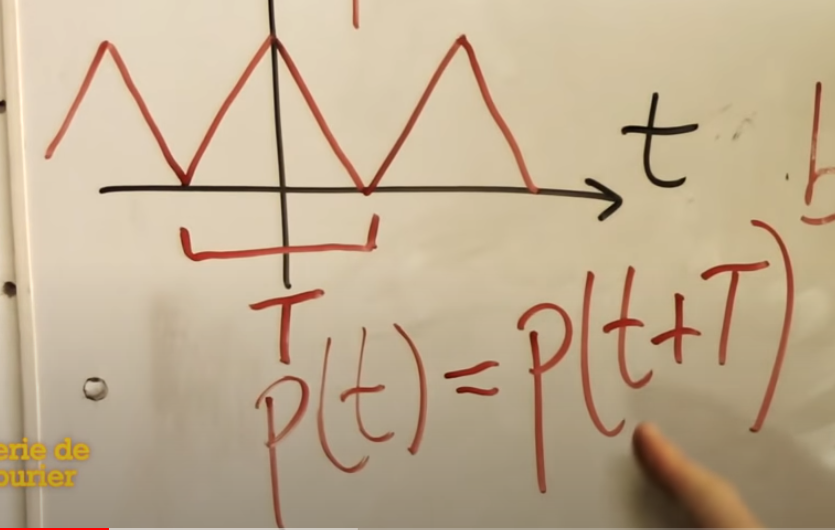 t
T
p(t) = p(t+T)
erie de
ourier